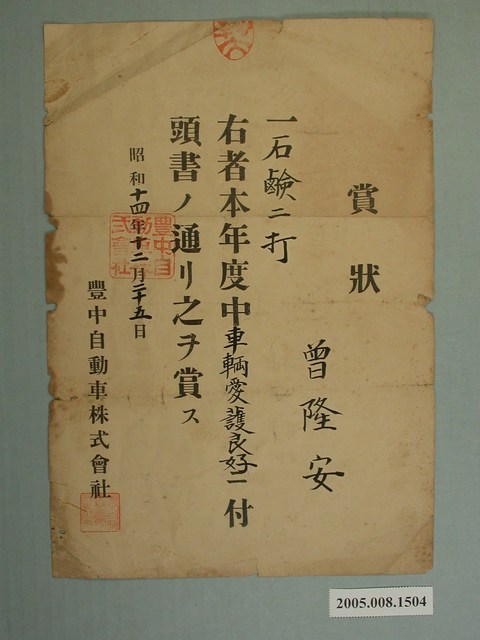 賞狀
曾隆安
一石鹸二打
右者本年度中車輌愛護良好ニ付
頭書ノ通リ之ヲ賞ス
昭和十四年十二月二十五日
豐中自動車株式會社
豐中自動車株式會社
2005.008.1504